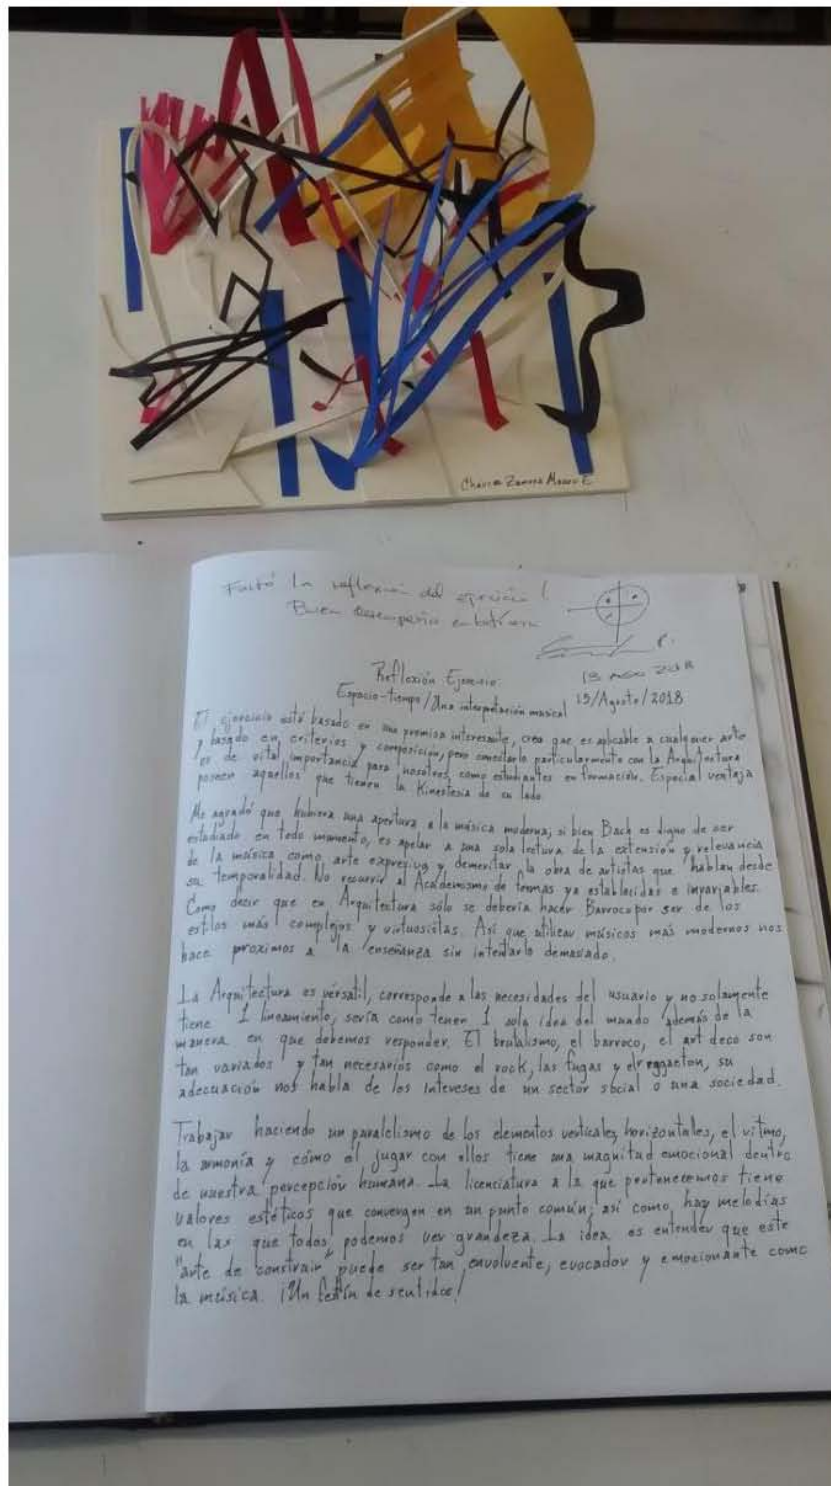 Chavira Zamora M
Faltó la reflexión del ejercicio!
Buen desempeño en bitácora
13 AGO 2018
Reflexión Ejercicio
Espacio-tiempo/Una interpretación musical 15/Agosto/2018
El ejercicio está basado en una premisa interesante, creo que es aplicable a cualquier arte
y basado en criterios y composición, pero conectarlo particularmente con la Arquitectura
es de vital importancia para nosotros como estudiantes en formación. Especial ventaja
poseen aquellos que tienen la Kinestesia de su lado.
Me agradó que hubiera una apertura a la música moderna, si bien Bach es digno de ser
estudiado en todo momento, es apelar a una sola lectura de la extensión y relevancia
de la música como arte expresiva y demeritar la obra de artistas que hablan desde
su temporalidad. No recurrir al Academismo de formas ya establecidas e invariables.
Como decir que en Arquitectura sólo se debería hacer Barroco por ser de los
estilos más complejos y virtuosistas. Así que utilizar músicos más modernos nos
hace proximos a la enseñanza sin intentarlo demasiado.
La Arquitectura es vérsatil, corresponde a las necesidades del usuario y no solamente
tiene 1 lineamiento, sería como tener 1 sola idea del mundo además de la
manera en que debemos responder. El brutalismo, el barroco, el art deco son
tan variados y tan necesarios como el rock, las fugas y el reggaeton, su
adecuación nos habla de los intereses de un sector social o una sociedad.
Trabajar haciendo un paralelismo de los elementos verticales, horizontales, el ritmo,
la armonía y cómo el jugar con ellos tiene una magnitud emocional dentro
de nuestra percepción humana. La licenciatura a la que pertenecemos tiene
valores estéticos que convergen en un punto común; así como hay melodías
en las que todos podemos ver grandeza. La idea es entender que este
"arte de construir" puede ser tan envolvente, evocador y emocionante como
la música. ¡Un festín de sentidos!